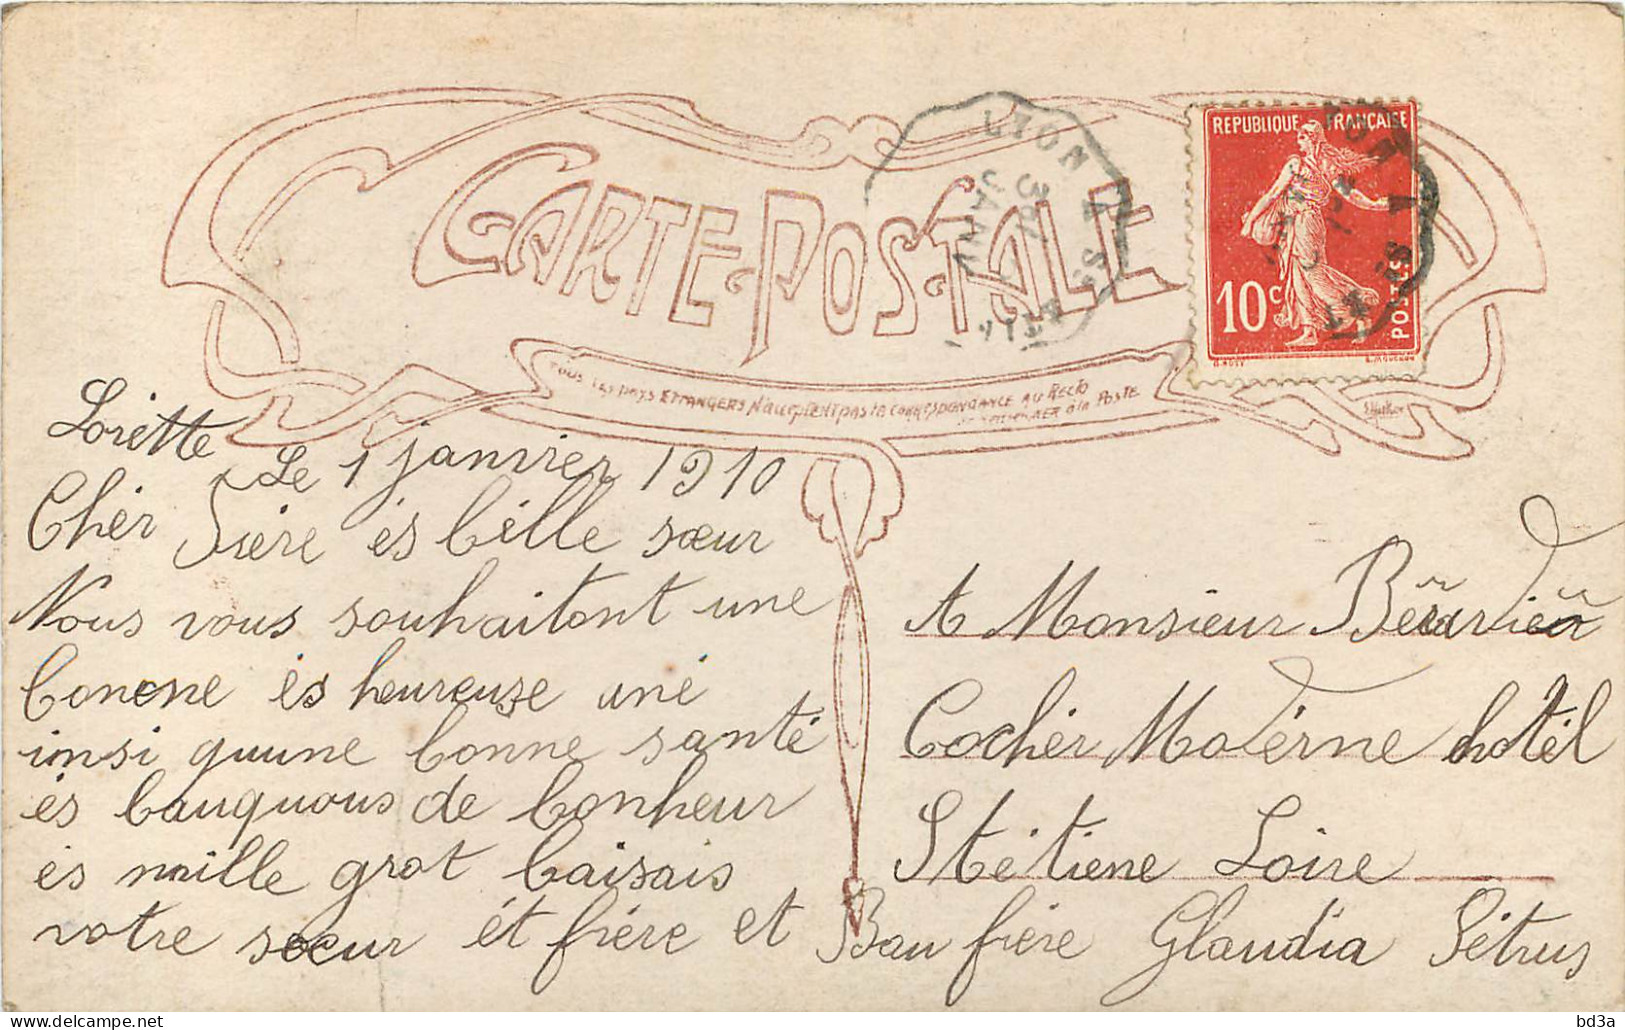 CARTE POSTALE
TOUS LES PAYS ETRANGERS N'ACCEPTENT PAS LA CORRESPONDANCE AU RECTO
A LA POSTE
REPUBLIQUE FRANÇAISE
10c
POSTES
LYON A
JANV
Lorette Le 1 janvier 1910
Chér frére és bélle sœur
Nous vous souhaitont une
bonene és heureuse uné
insi quune bonne santé
és bauquous de bonheur
és mille grot baisais
votre soeur ét frére et Bau frére Glaudia Pétrus
A Monsieur
Cochér Modérne hotél
St étiene Loire
bd3a